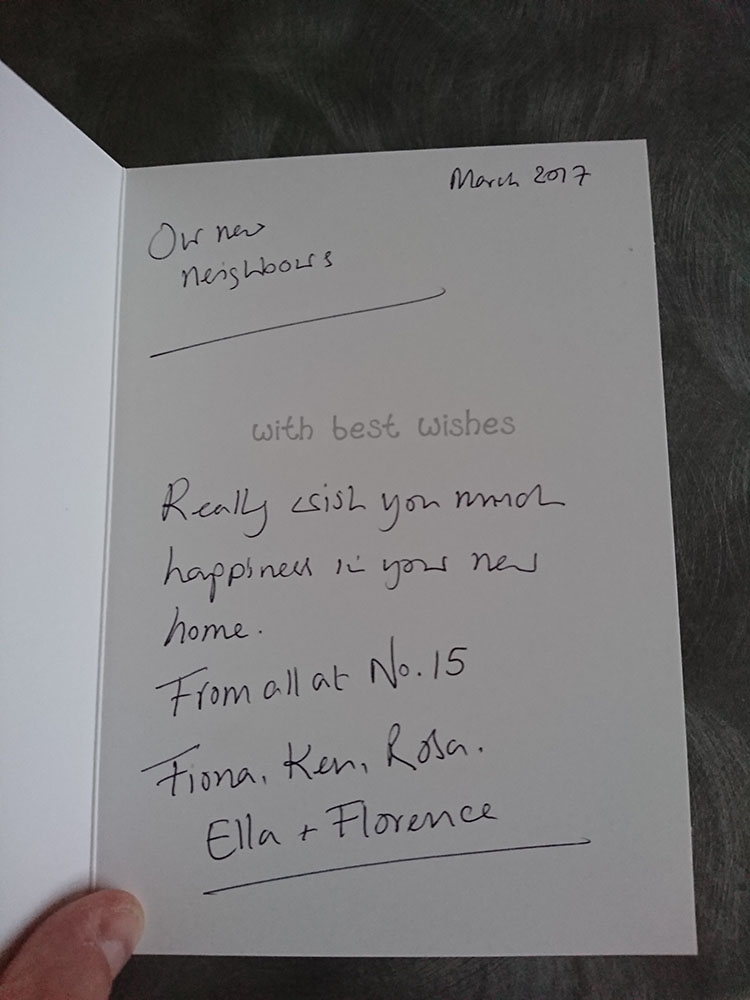 March 2017
Our new
neighbours
with best wishes
Really wish you much
happiness in your new
home.
From all at No. 15
Fiona, Ken, Rosa.
Ella + Florence